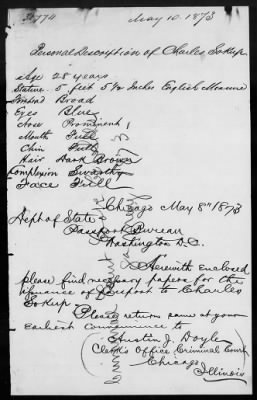 May 10. 1873
Personal Description of Charles Sokup
Age 28 years
Stature 5 feet 5 1/2 Inches English Measure
Forehead Broad
Eyes Blue
Nose Prominent
Mouth Full
Chin Full
Hair Dark Brown
Complexion Swarthy
Face Full
Chicago May 8th 1873
Dept of State
Passport Bureau
Washington D.C.
Herewith enclosed
please find necessary papers for the
issuance of Passport to Charles
Sokup.
Please return same at your
earliest convenience to
Austin J. Doyle
Clerk's Office Criminal Court
Chicago
Illinois